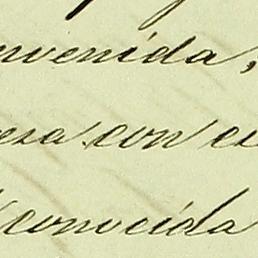 nvenida,
esa con es
conocida